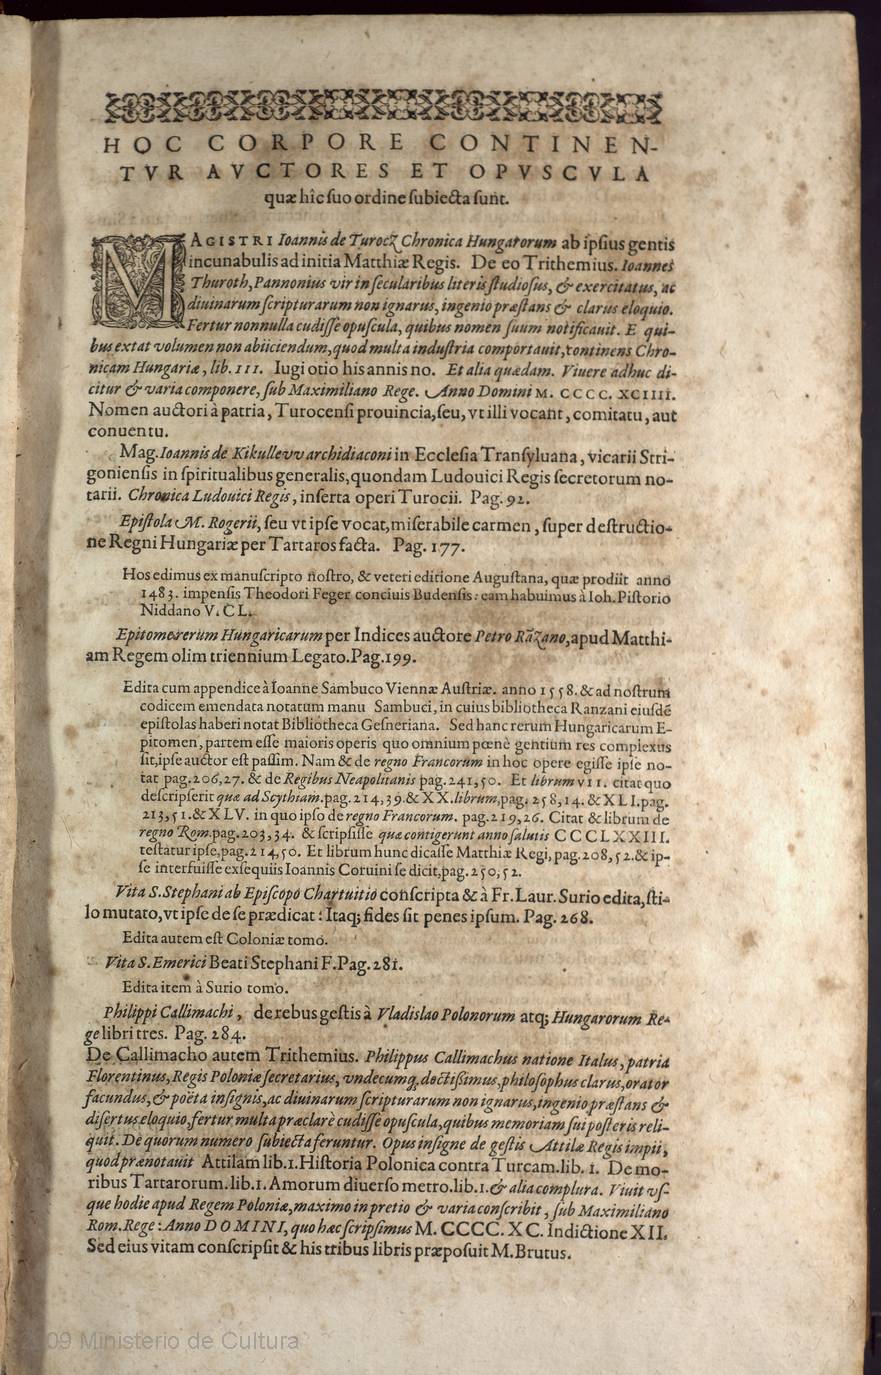 HOC CORPORE CONTINEN-
TVR AVCTORES ET OPVSCVLA
quæ hîc ſuo ordine ſubiecta ſunt.
MAGISTRI Ioannis de Turocz Chronica Hungarorum ab ipſius gentis
incunabulis ad initia Matthiæ Regis. De eo Trithemius. Ioannes
Thuroth, Pannonius vir in ſecularibus literis ſtudioſus, & exercitatus, ac
diuinarum ſcripturarum non ignarus, ingenio præſtans & clarus eloquio.
Fertur nonnulla cudiſſe opuſcula, quibus nomen ſuum notificauit. E qui-
bus extat volumen non abiiciendum, quod multa induſtria comportauit, continens Chro-
nicam Hungariæ, lib. III. Iugi otio his annis no. Et alia quædam. Viuere adhuc di-
citur & varia componere, ſub Maximiliano Rege. Anno Domini M. CCCC. XCIIII.
Nomen auctori à patria, Turocenſi prouincia, ſeu, vt illi vocant, comitatu, aut
conuentu.
Mag. Ioannis de Kikullevv archidiaconi in Eccleſia Tranſyluana, vicarii Stri-
gonienſis in ſpiritualibus generalis, quondam Ludouici Regis ſecretorum no-
tarii. Chronica Ludouici Regis, inſerta operi Turocii. Pag. 92.
Epiſtola M. Rogerii, ſeu vt ipſe vocat, miſerabile carmen, ſuper deſtructio-
ne Regni Hungariæ per Tartaros facta. Pag. 177.
Hos edimus ex manuſcripto noſtro, & veteri editione Auguſtana, quæ prodiit anno
1483. impenſis Theodori Feger conciuis Budenſis: eam habuimus à Ioh. Piſtorio
Niddano V. CL.
Epitome rerum Hungaricarum per Indices auctore Petro Rāzano, apud Matthi-
am Regem olim triennium Legato. Pag. 199.
Edita cum appendice à Ioanne Sambuco Viennæ Auſtriæ. anno 1558. & ad noſtrum
codicem emendata notatum manu Sambuci, in cuius bibliotheca Ranzani eiuſdē
epiſtolas haberi notat Bibliotheca Geſneriana. Sed hanc rerum Hungaricarum E-
pitomen, partem eſſe maioris operis quo omnium pœnè gentium res complexus
ſit, ipſe auctor eſt paſſim. Nam & de regno Francorum in hoc opere egiſſe ipſe no-
tat pag. 206, 27. & de Regibus Neapolitanis pag. 241, 50. Et librum VII. citat quo
deſcripſerit quæ ad Scythiam. pag. 214, 39. & XX. librum, pag. 258, 14. & XLI. pag.
213, 51. & XLV. in quo ipſo de regno Francorum. pag. 219, 26. Citat & librum de
regno Rom. pag. 203, 34. & ſcripſiſſe quæ contigerunt anno ſalutis CCCLXXIII.
teſtatur ipſe, pag. 214, 50. Et librum hunc dicaſſe Matthiæ Regi, pag. 208, 52. & ip-
ſe interfuiſſe exſequiis Ioannis Coruini ſe dicit, pag. 250, 52.
Vita S. Stephani ab Epiſcopo Chartuitio conſcripta & à Fr. Laur. Surio edita, ſti-
lo mutato, vt ipſe de ſe prædicat: Itaq; fides ſit penes ipſum. Pag. 268.
Edita autem eſt Coloniæ tomo.
Vita S. Emerici Beati Stephani F. Pag. 281.
Edita item à Surio tomo.
Philippi Callimachi, de rebus geſtis à Vladislao Polonorum atq; Hungarorum Re-
ge libri tres. Pag. 284.
De Callimacho autem Trithemius. Philippus Callimachus natione Italus, patria
Florentinus, Regis Poloniæ ſecretarius, vndecumq; doctißimus, philoſophus clarus, orator
facundus, & poëta inſignis, ac diuinarum ſcripturarum non ignarus, ingenio præſtans &
diſertus eloquio, fertur multa præclarè cudiſſe opuſcula, quibus memoriam ſui poſteris reli-
quit. De quorum numero ſubiecta feruntur. Opus inſigne de geſtis Attilæ Regis impii,
quod prænotauit Attilam lib. 1. Hiſtoria Polonica contra Turcam. lib. 1. De mo-
ribus Tartarorum. lib. 1. Amorum diuerſo metro. lib. 1. & alia complura. Viuit vſ-
que hodie apud Regem Poloniæ, maximo in pretio & varia conſcribit, ſub Maximiliano
Rom. Rege: Anno DOMINI, quo hæc ſcripſimus M. CCCC. XC. Indictione XII.
Sed eius vitam conſcripſit & his tribus libris præpoſuit M. Brutus.
2009 Ministerio de Cultura